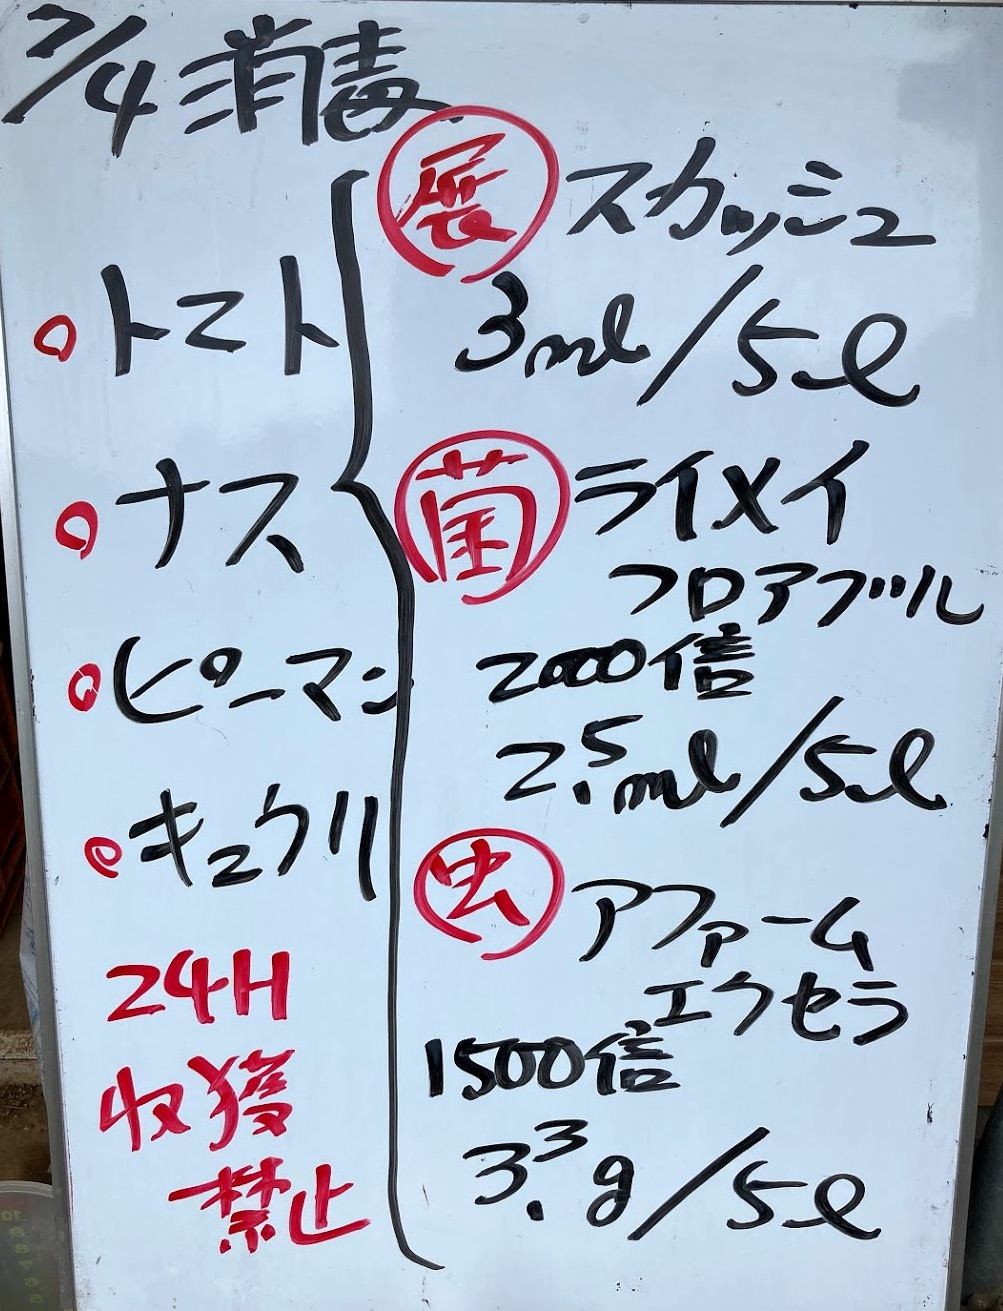 7/4 消毒
トマト
ナス
ピーマン
キュウリ
24H
収獲
禁止
展 スカッシュ
3ml/5l
菌 ライメイ
フロアブル
2000倍
2.5ml/5l
虫 アファーム
エクセラ
1500倍
3.3g/5l